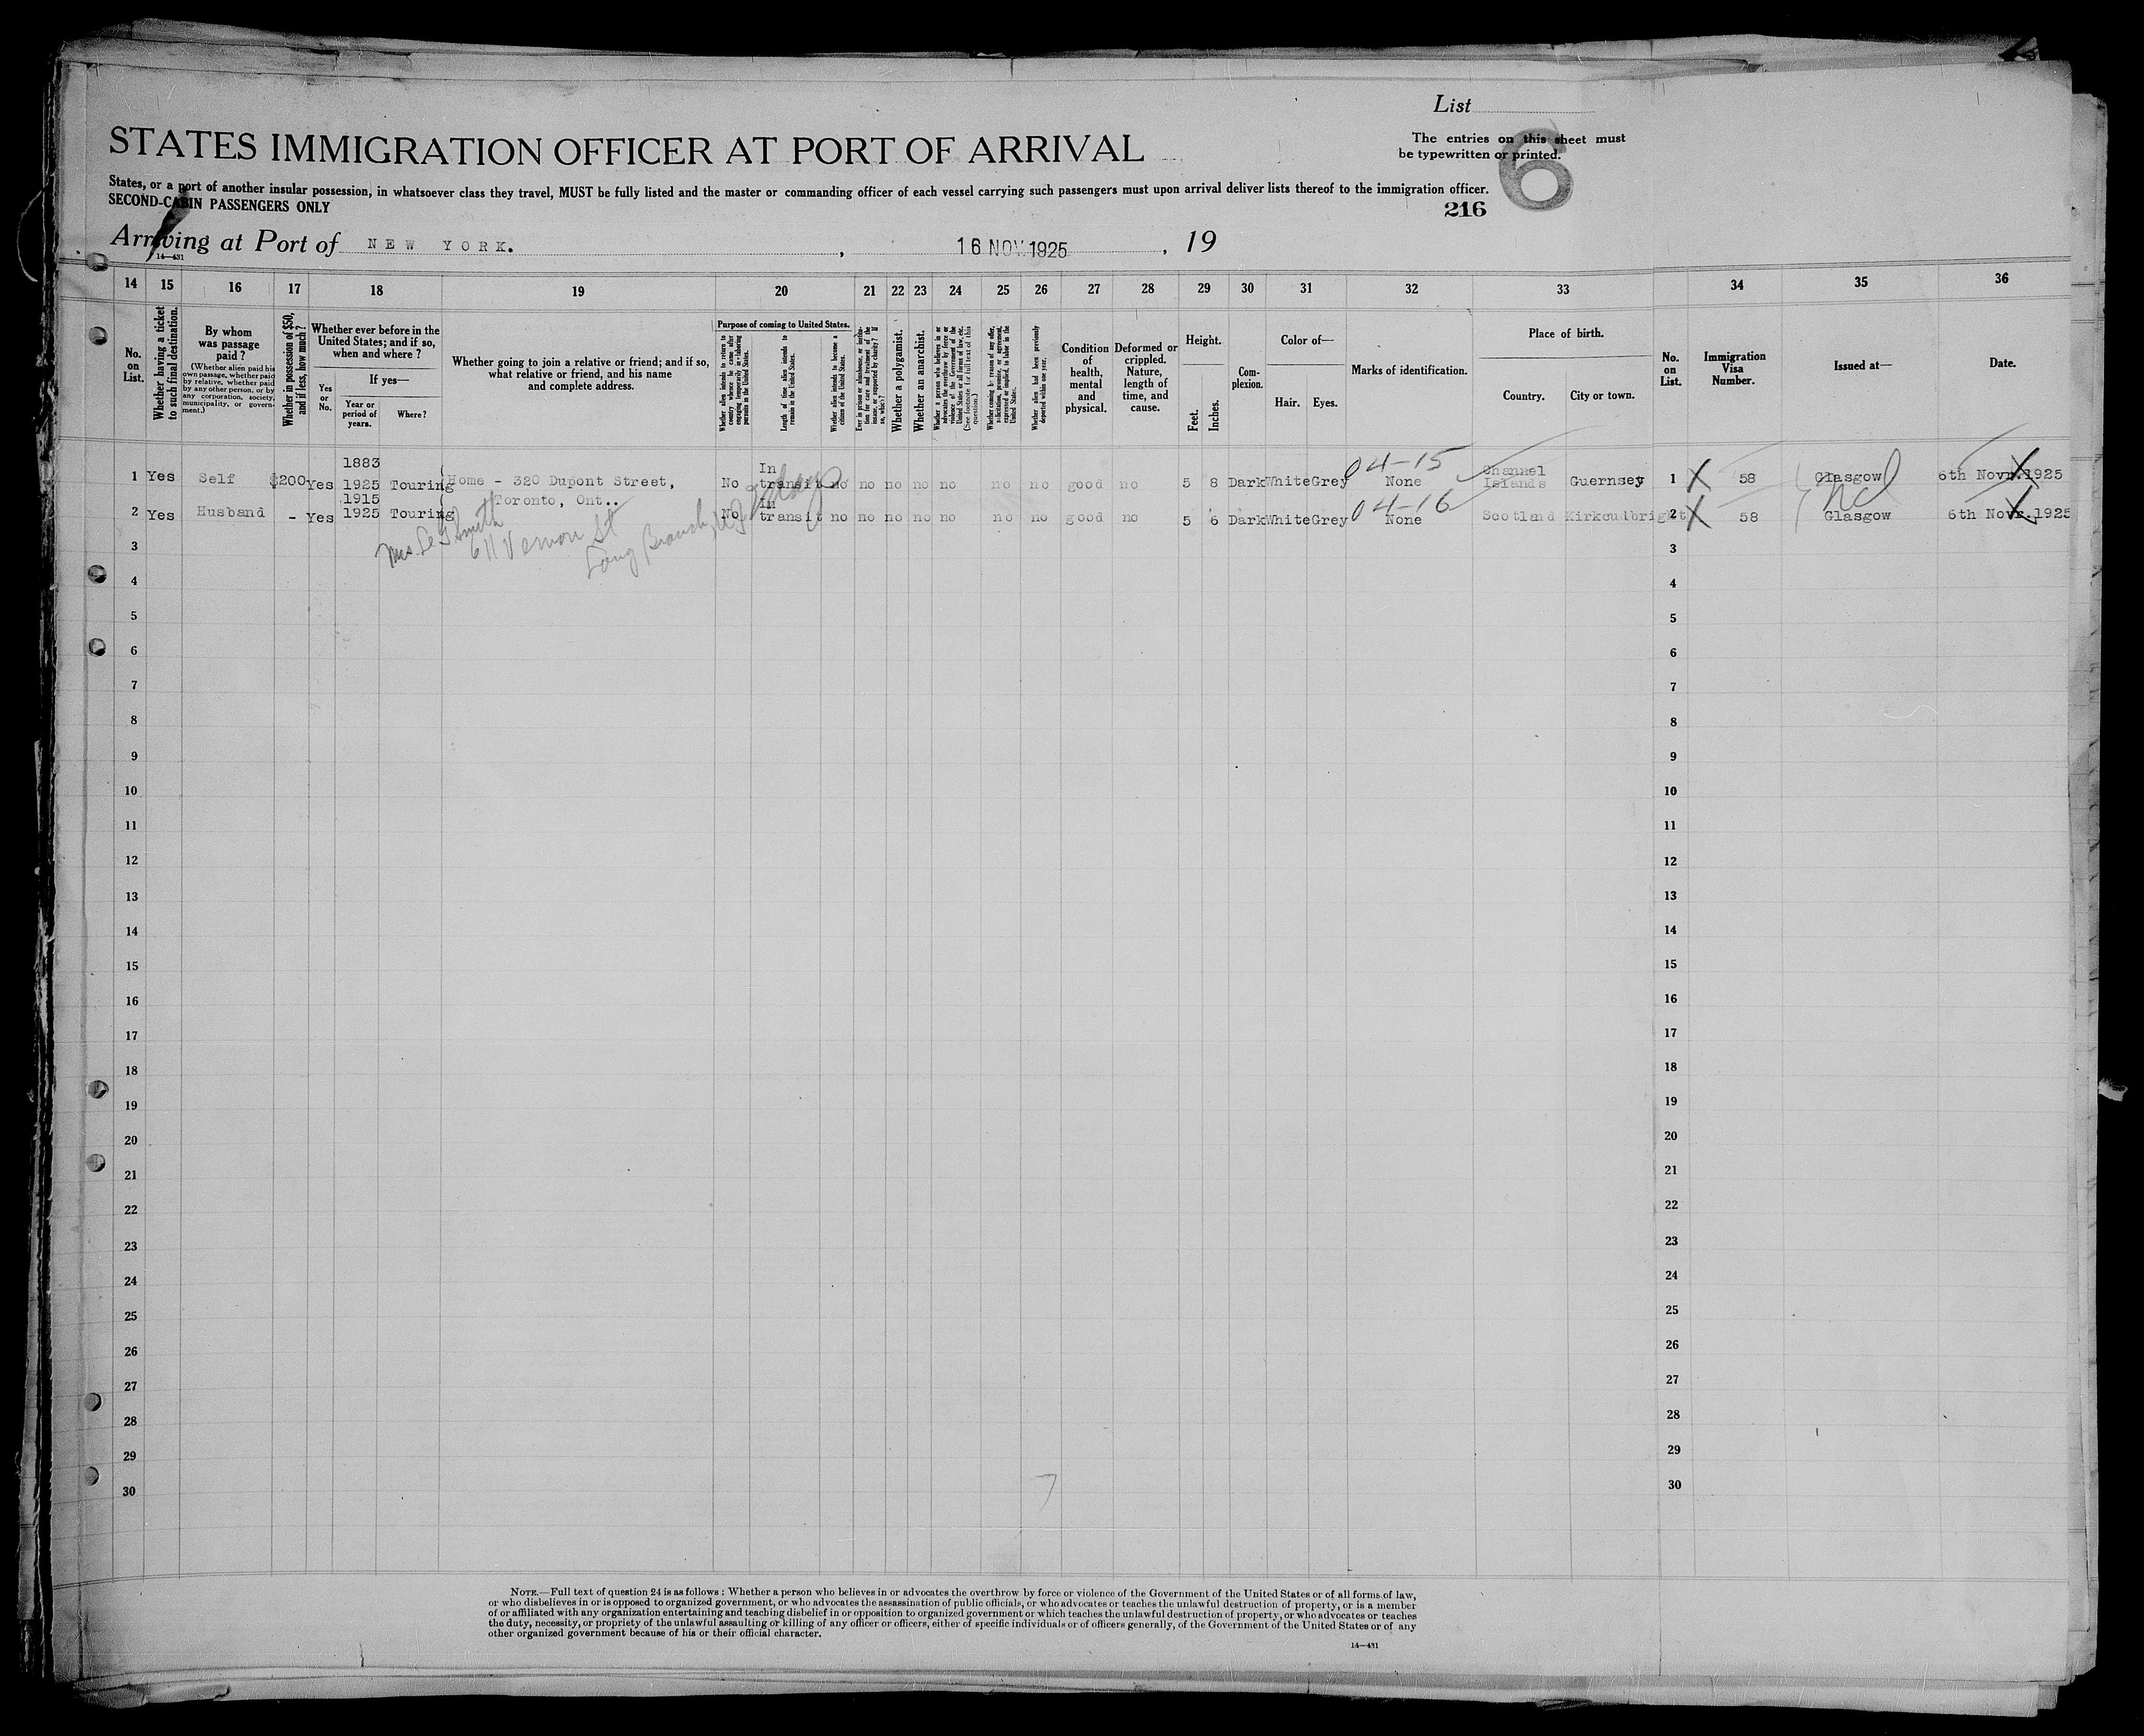 List
STATES IMMIGRATION OFFICER AT PORT OF ARRIVAL
The entries on this sheet must
be typewritten or printed.
6
States, or a port of another insular possession, in whatsoever class they travel, MUST be fully listed and the master or commanding officer of each vessel carrying such passengers must upon arrival deliver lists thereof to the immigration officer.
SECOND-CABIN PASSENGERS ONLY
216
Arriving at Port of NEW YORK. , 16 NOV 1925 , 19
14—431
14 15 16 17 18 19 20 21 22 23 24 25 26 27 28 29 30 31 32 33 34 35 36
No. on List.
Whether having a ticket to such final destination.
By whom was passage paid?
(Whether alien paid his own passage, whether paid by relative, whether paid by any other person, or by any corporation, society, municipality, or government.)
Whether in possession of $50, and if less, how much?
Whether ever before in the United States; and if so, when and where?
Yes or No.
If yes—
Year or period of years.
Where?
Whether going to join a relative or friend; and if so, what relative or friend, and his name and complete address.
Purpose of coming to United States.
Whether alien intends to return to country whence he came after engaging temporarily in laboring pursuits in the United States.
Length of time alien intends to remain in the United States.
Whether alien intends to become a citizen of the United States.
Ever in prison or almshouse, or institution for care and treatment of the insane, or supported by charity? If so, which?
Whether a polygamist.
Whether an anarchist.
Whether a person who believes in or advocates the overthrow by force or violence of the Government of the United States or all forms of law, etc. (See footnote for full text of this question.)
Whether coming by reason of any offer, solicitation, promise, or agreement, expressed or implied, to labor in the United States.
Whether alien had been previously deported within one year.
Condition of health, mental and physical.
Deformed or crippled. Nature, length of time, and cause.
Height.
Feet. Inches.
Complexion.
Color of—
Hair. Eyes.
Marks of identification.
Place of birth.
Country. City or town.
No. on List.
Immigration Visa Number.
Issued at—
Date.
1 Yes Self $200 Yes 1883 1925 Touring Home - 320 Dupont Street, Toronto, Ont.. No In transit no no no no no no no good no 5 8 Dark White Grey 04-15 None Channel Islands Guernsey 1 X 58 Glasgow 6th Novr. 1925
2 Yes Husband - Yes 1915 1925 Touring No In transit no no no no no no no good no 5 6 Dark White Grey 04-16 None Scotland Kirkcudbright 2 X 58 Glasgow 6th Novr. 1925
Smith
611 Vernon St
Long Branch, NJ
3 3
4 4
5 5
6 6
7 7
8 8
9 9
10 10
11 11
12 12
13 13
14 14
15 15
16 16
17 17
18 18
19 19
20 20
21 21
22 22
23 23
24 24
25 25
26 26
27 27
28 28
29 29
30 30
NOTE.—Full text of question 24 is as follows: Whether a person who believes in or advocates the overthrow by force or violence of the Government of the United States or of all forms of law,
or who disbelieves in or is opposed to organized government, or who advocates the assassination of public officials, or who advocates or teaches the unlawful destruction of property, or is a member
of or affiliated with any organization entertaining and teaching disbelief in or opposition to organized government or which teaches the unlawful destruction of property, or who advocates or teaches
the duty, necessity, or propriety of the unlawful assaulting or killing of any officer or officers, either of specific individuals or of officers generally, of the Government of the United States or of any
other organized government because of his or their official character.
14—431